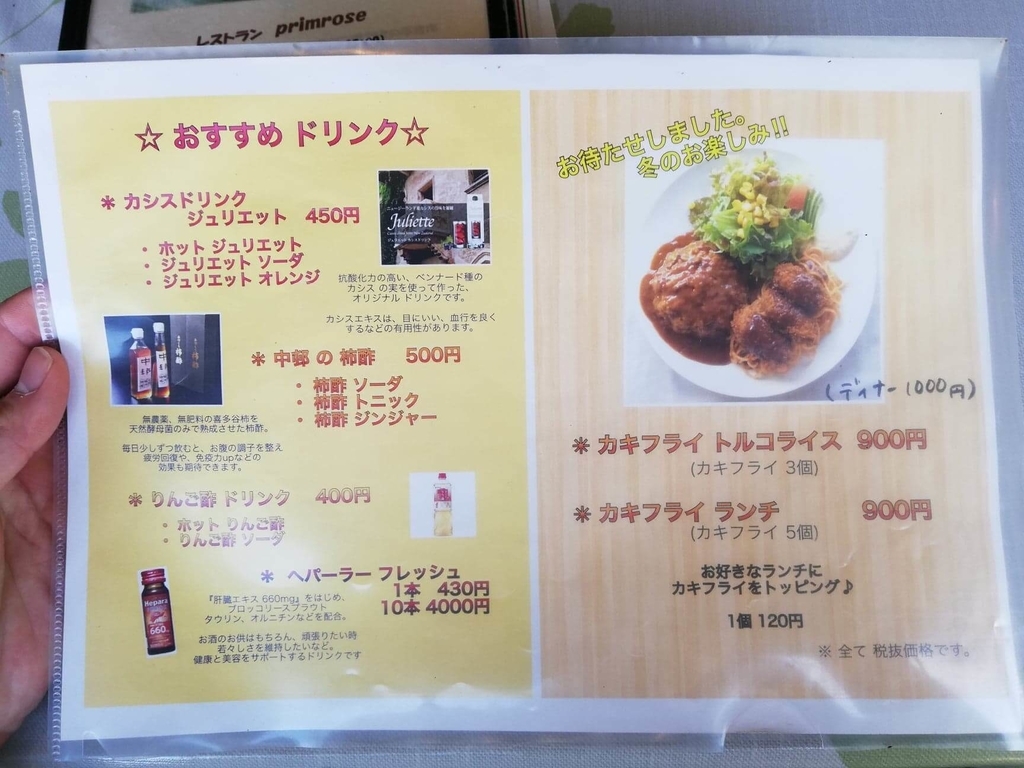 レストラン primrose
☆ おすすめ ドリンク☆
＊ カシスドリンク
ジュリエット 450円
・ ホット ジュリエット
・ ジュリエット ソーダ
・ ジュリエット オレンジ
Juliette
抗酸化力の高い、ベンナード種の
カシス の実を使って作った、
オリジナル ドリンクです。
カシスエキスは、目にいい、血行を良く
するなどの有用性があります。
＊ 中邨 の 柿酢 500円
・ 柿酢 ソーダ
・ 柿酢 トニック
・ 柿酢 ジンジャー
無農薬、無肥料の喜多谷柿を
天然酵母菌のみで熟成させた柿酢。
毎日少しずつ飲むと、お腹の調子を整え
疲労回復や、免疫力upなどの
効果も期待できます。
＊ りんご酢 ドリンク 400円
・ ホット りんご酢
・ りんご酢 ソーダ
＊ ヘパーラー フレッシュ
1本 430円
10本 4000円
『肝臓エキス 660mg』をはじめ、
ブロッコリースプラウト
タウリン、オルニチンなどを配合。
Hepara
660
お酒のお供はもちろん、頑張りたい時
若々しさを維持したいなど。
健康と美容をサポートするドリンクです
お待たせしました。
冬のお楽しみ!!
(ディナー 1000円)
＊ カキフライ トルコライス 900円
(カキフライ 3個)
＊ カキフライ ランチ 900円
(カキフライ 5個)
お好きなランチに
カキフライをトッピング♪
1個 120円
※ 全て 税抜価格です。